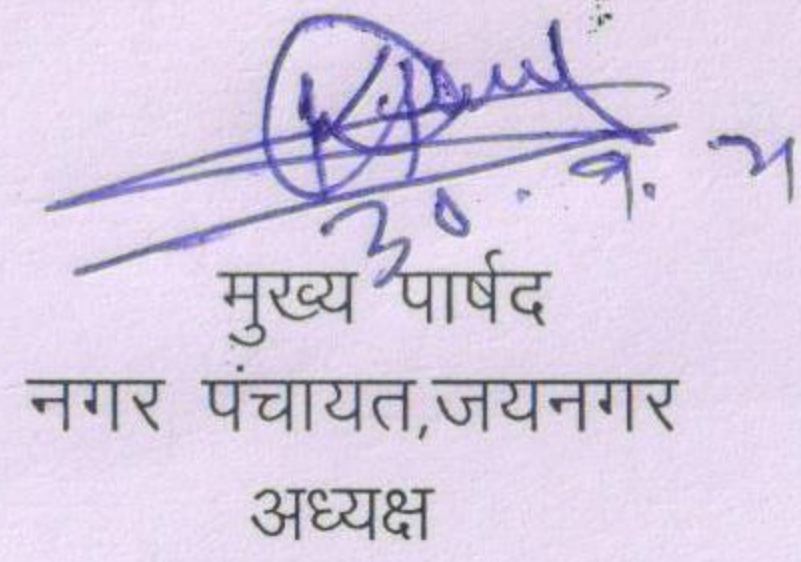 30.9.21
मुख्य पार्षद
नगर पंचायत,जयनगर
अध्यक्ष